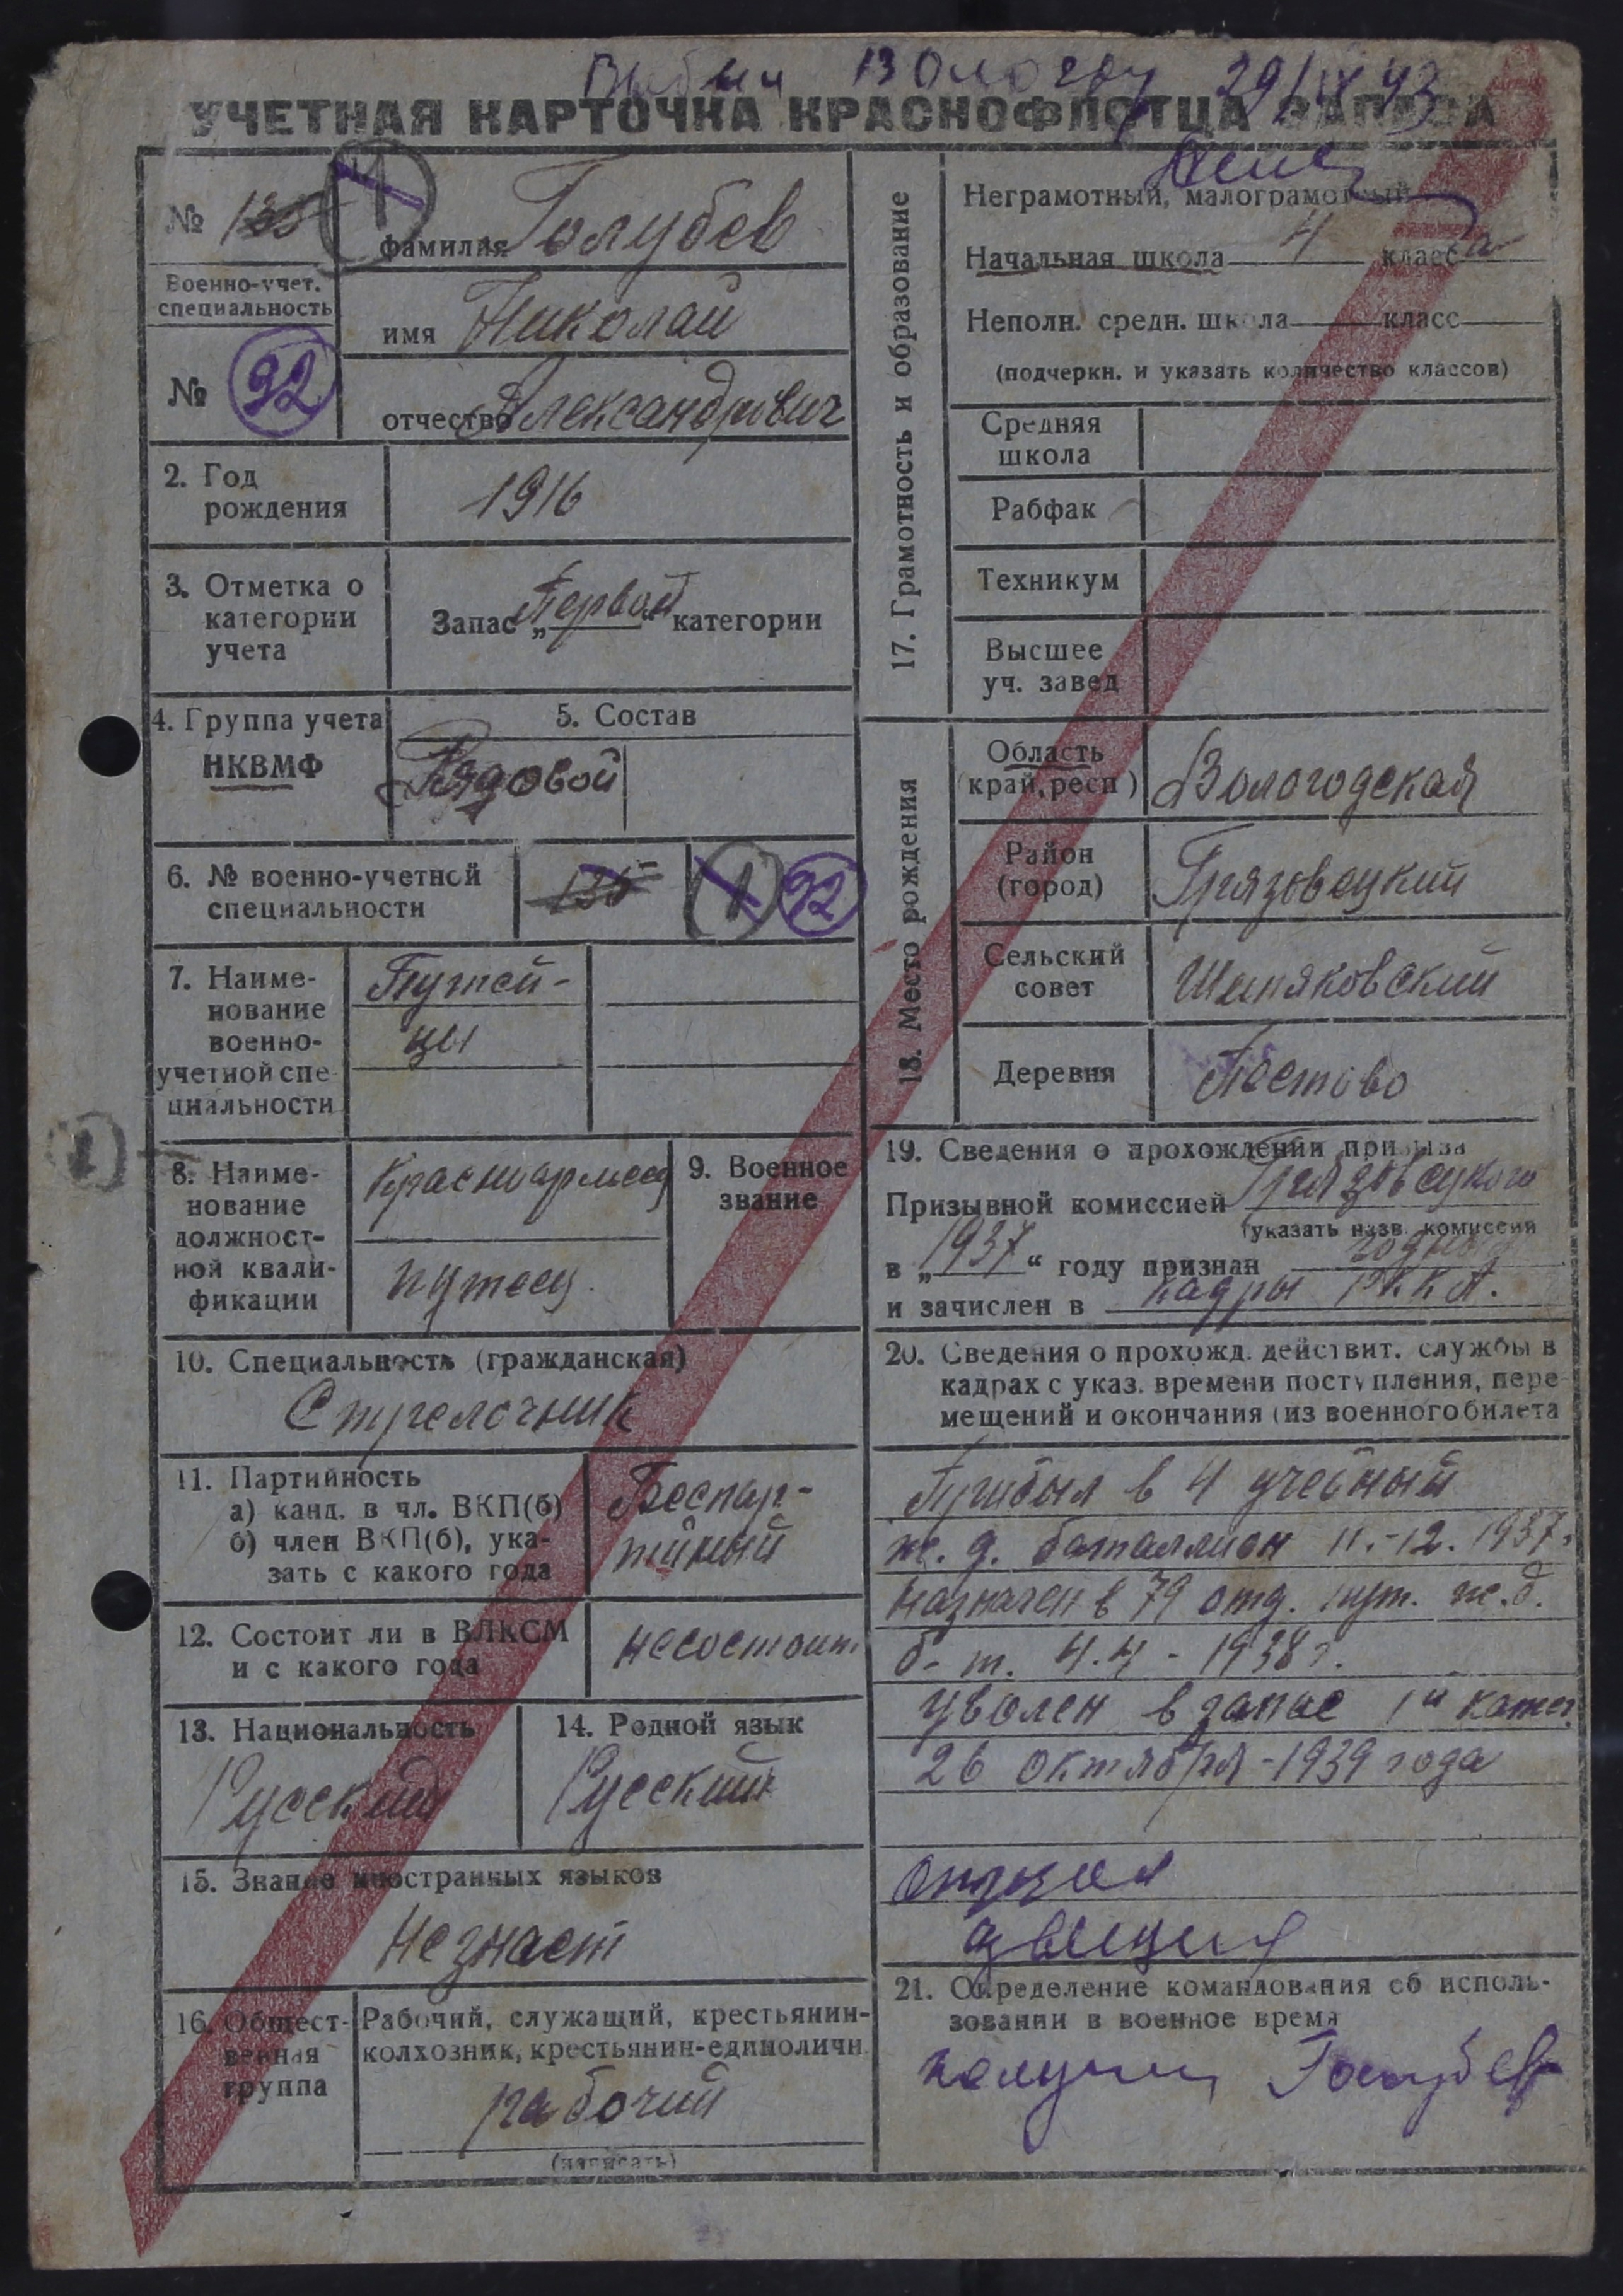 Выбыл Вологду 29/IX 43
УЧЕТНАЯ КАРТОЧКА КРАСНОФЛОТЦА ЗАПАСА
№ 135 1
фамилия Голубев
Военно-учет.
специальность
имя Николай
№ 92
отчество Александрович
2. Год
рождения
1916
3. Отметка о
категории
учета
Запас „Первой“ категории
4. Группа учета
НКВМФ
5. Состав
Рядовой
6. № военно-учетной
специальности
135 1 92
7. Наиме-
нование
военно-
учетной спе-
циальности
Путей-
цы
8. Наиме-
нование
должност-
ной квали-
фикации
Красноармеец
путеец.
9. Военное
звание
10. Специальность (гражданская)
Стрелочник
11. Партийность
а) канд. в чл. ВКП(б)
б) член ВКП(б), ука-
зать с какого года
Беспар-
тийный
12. Состоит ли в ВЛКСМ
и с какого года
несостоит
13. Национальность
Русский
14. Родной язык
Русский
15. Знание иностранных языков
Не знает
16. Общест-
венная
группа
Рабочий, служащий, крестьянин-
колхозник, крестьянин-единоличн.
рабочий
(написать)
17. Грамотность и образование
Неграмотный, малограмотный
Начальная школа 4 класса
Неполн. средн. школа класс
(подчеркн. и указать количество классов)
Средняя
школа
Рабфак
Техникум
Высшее
уч. завед
18. Место рождения
Область
(край, респ)
Вологодская
Район
(город)
Грязовецкий
Сельский
совет
Шепяковский
Деревня
Постово
19. Сведения о прохождении призыва
Призывной комиссией Грязовецкого
(указать назв. комиссии
в „1937“ году признан годным
и зачислен в кадры РККА.
20. Сведения о прохожд. действит. службы в
кадрах с указ. времени поступления, пере-
мещений и окончания (из военного билета
Прибыл в 4 учебный
ж. д. баталлион 11.-12. 1937г
Назначен в 79 отд. пут. ж.д.
б-т. 4.4 - 1938 г.
Уволен в запас 1й катег.
26 октября-1939 года
21. Определение командования об исполь-
зовании в военное время
получил Голубев